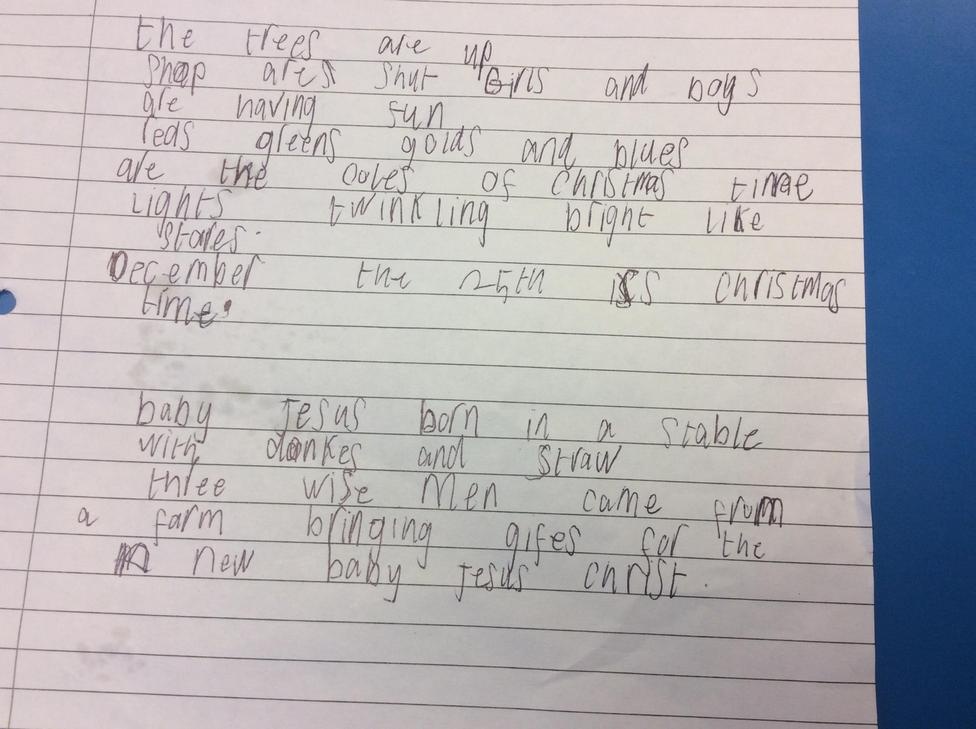 the trees are up
shop ares shut Girls and boys
are having fun
reds greens golds and blues
are the coles of christmas time
Lights twinkling bright like
stares.
December the 25th is christmas
time.
baby Jesus born in a stable
with donkes and straw
three wise men came from
a farm bringing gifes for the
new baby Jesus christ.